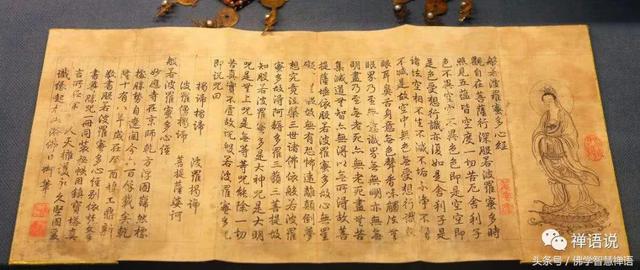 般若波羅蜜多心經
觀自在菩薩行深般若波羅蜜多時
照見五蘊皆空度一切苦厄舍利子
色不異空空不異色色即是空空即
是色受想行識亦復如是舍利子是
諸法空相不生不滅不垢不淨不增
不減是故空中無色無受想行識無
眼耳鼻舌身意無色聲香味觸法無
眼界乃至無意識界無無明亦無無
明盡乃至無老死亦無老死盡無苦
集滅道無智亦無得以無所得故菩
提薩埵依般若波羅蜜多故心無罣
礙無罣礙故無有恐怖遠離顛倒夢
想究竟涅槃三世諸佛依般若波羅
蜜多故得阿耨多羅三藐三菩提故
知般若波羅蜜多是大神咒是大明
咒是無上咒是無等等咒能除一切
苦真實不虛故說般若波羅蜜多咒
即說咒曰
揭諦揭諦 波羅揭諦
波羅僧揭諦 菩提薩婆訶
般若波羅蜜多心經
妙應寺在京師乾方浮圖巋然標
勝自遼閱今六百餘載乾
隆十有八年
敬書般若波羅蜜多心經
書尊勝咒一冊同
御筆
禅语说
头条号/佛学智慧禅语